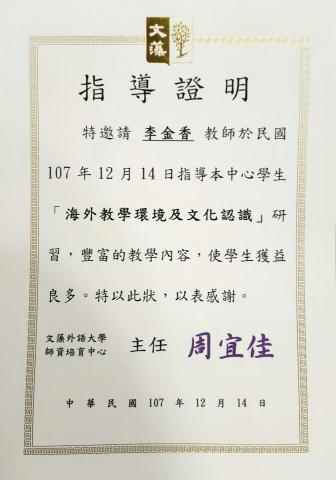 文藻
指導證明
特邀請 李金香 教師於民國
107年12月14日指導本中心學生
「海外教學環境及文化認識」研
習，豐富的教學內容，使學生獲益
良多。特以此狀，以表感謝。
文藻外語大學
師資培育中心
主任 周宜佳
中華民國 107 年 12 月 14 日